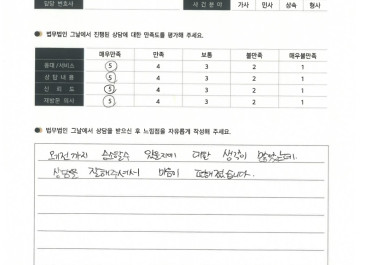 담당 변호사 사건분야 가사 민사 상속 형사
법무법인 그날에서 진행된 상담에 대한 만족도를 평가해 주세요.
매우만족 만족 보통 불만족 매우불만족
응대/서비스 5 4 3 2 1
상담내용 5 4 3 2 1
신뢰도 5 4 3 2 1
재방문 의사 5 4 3 2 1
법무법인 그날에서 상담을 받으신 후 느낌점을 자유롭게 작성해 주세요.
오기전까지 승소할수 있을지에 대한 생각이 많았는데.
상담을 잘해주셔서 마음이 편해졌습니다.